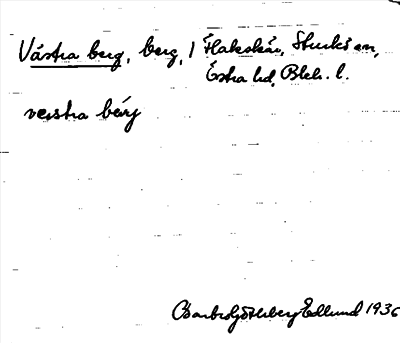 Västra berg, berg, / Flakskär, Sturkö sn,
Östra hd, Blek. l.
västra bärj
Barbro Götlberg Edlund 1936